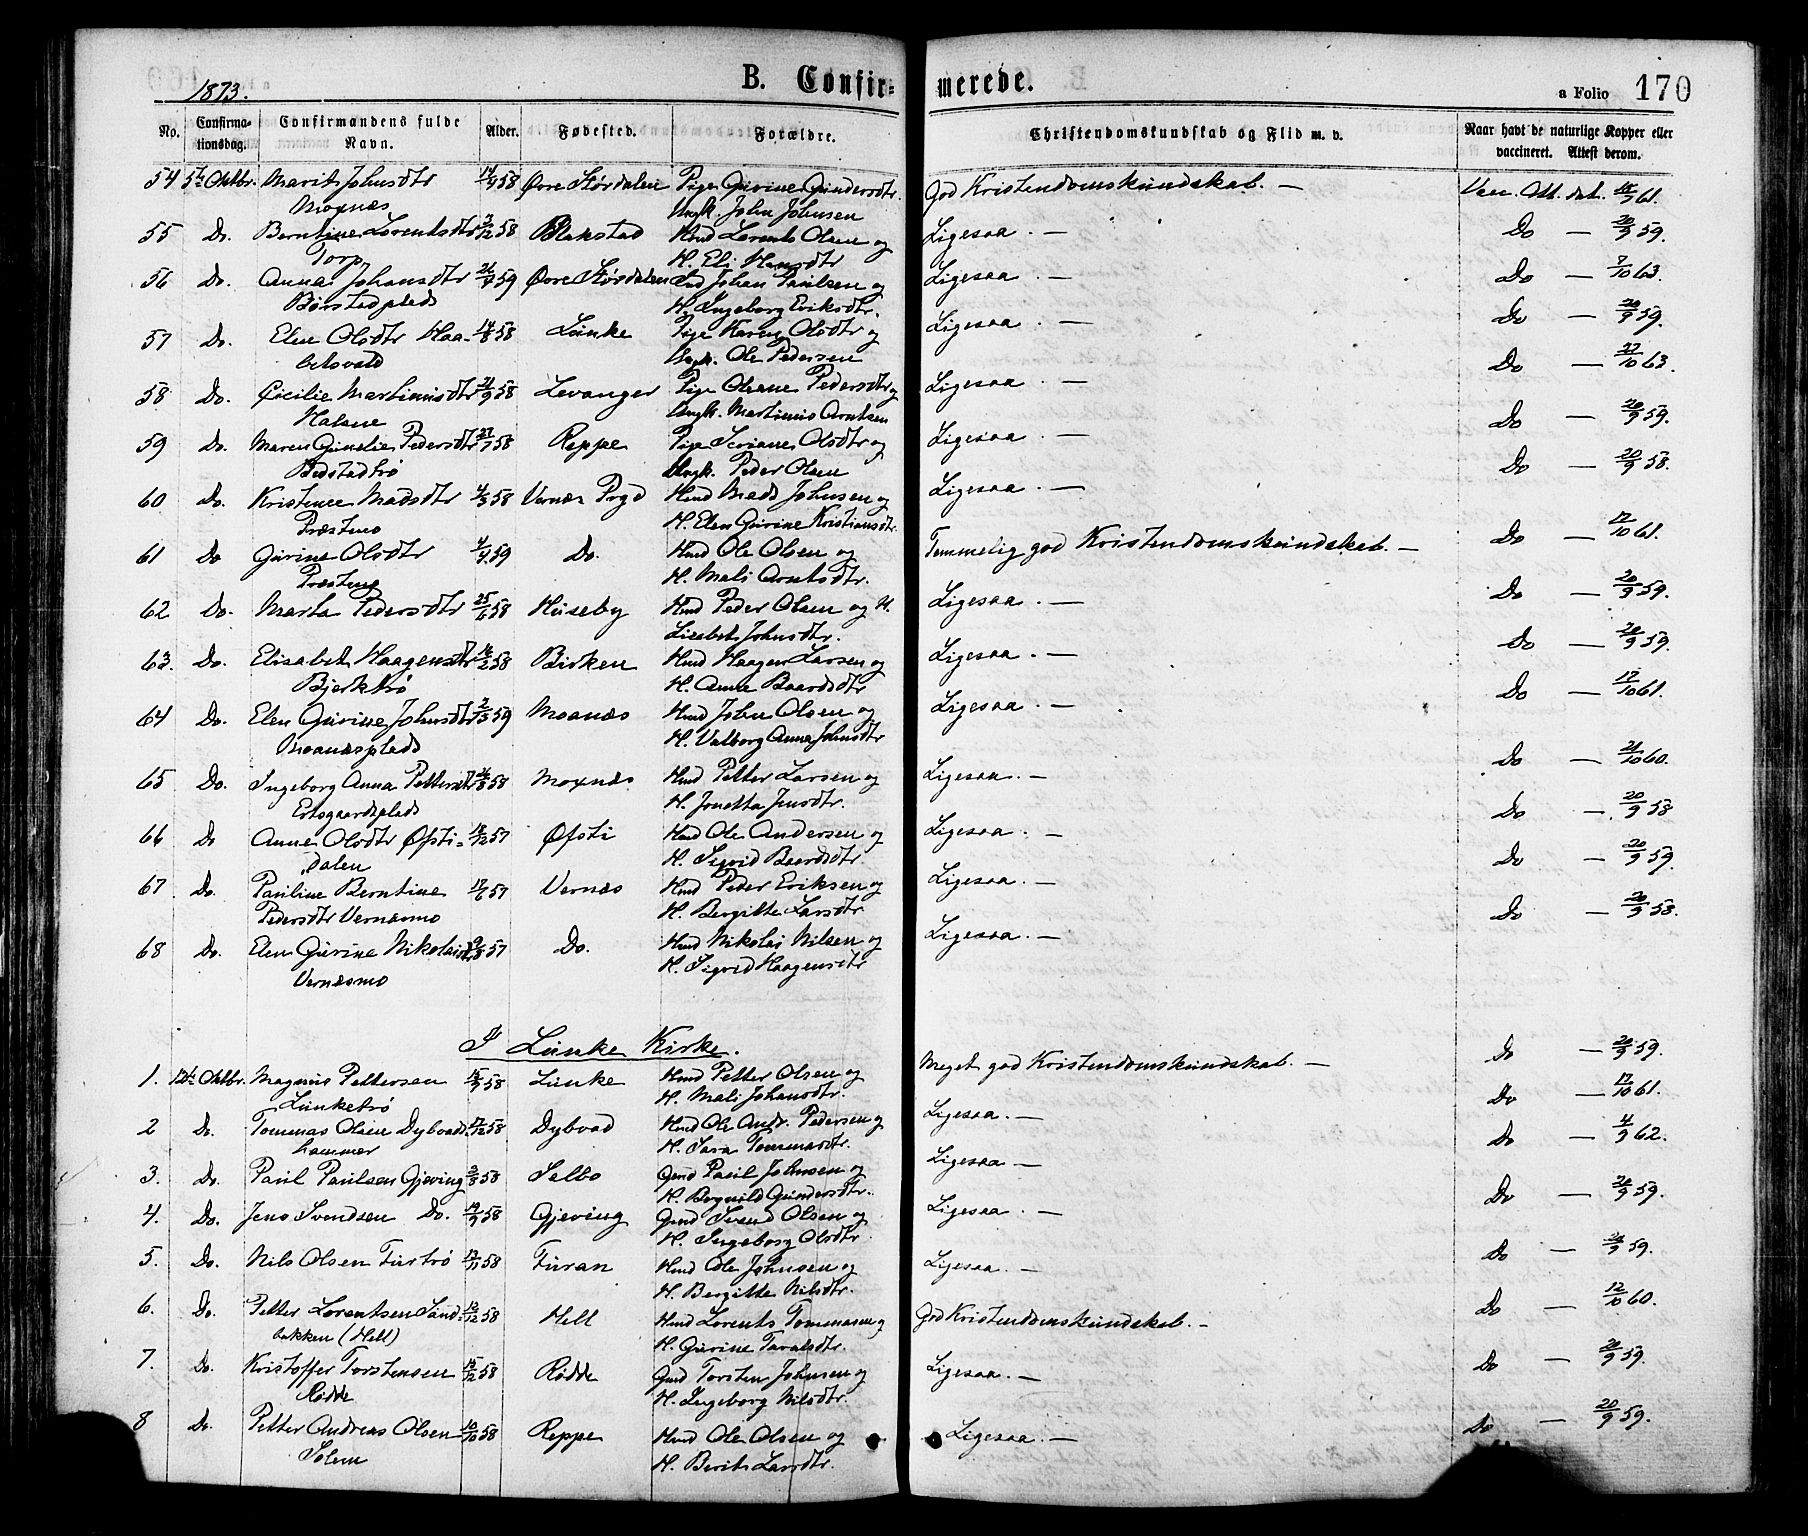 1873.
B. Confir=
merede.
a Folio 170
No.
Confirma-
tionsdag.
Confirmandens fulde
Navn.
Alder.
Fødested.
Forældre.
Christendomskundskab og Flid m. v.
Naar havt de naturlige Kopper eller
vaccineret. Attest derom.
54 5te Oktbr. Marit Johnsdtr 58 Øvre Størdalen Pige Gurine Gundersdtr. God Kristendomskundskab. — Vac. Att. dat. 61.
Moxnæs Ungk. John Johnsen
55 Do. Berntine Lorentsdtr 58 Blakstad Hmd Lorents Olsen og Ligesaa. — Do — 20/9 59.
Torp H. Eli Hansdtr
56 Do. Anna Johansdtr 59 Øvre Størdalen Ind Johan Paulsen og Ligesaa. — Do — 7/10 63.
Børstadplads H. Ingeborg Eriksdtr.
57 Do. Elen Olsdtr Haa- 58 Lånke Pige Karen Olsdtr og Ligesaa. — Do — 20/9 59.
betsvald Ungk. Ole Pedersen
58 Do. Cecilie Martinusdtr 21/9 58 Levanger Pige Olsane Pedersdtr og Ligesaa. — Do — 27/10 63.
Halsne Ungk. Martinus Arntsen
59 Do. Maren Gunelie Pedersdtr 27/7 58 Reppe Pige Seriane Olsdtr og Ligesaa. — Do — 20/9 59.
Bedstadtrø Ungk. Peder Olsen
60 Do. Kristence Madsdtr 4/3 58 Vernæs Prgd Hmd Mads Johnsen og Ligesaa. — Do — 20/9 58.
Præstmo H. Elen Gurine Kristiansdtr.
61 Do Gurine Olsdtr 59 Do. Hmd Ole Olsen og Temmelig god Kristendomskundskab. — Do — 17/10 61.
Præstmo H. Mali Arntsdtr.
62 Do. Marta Pedersdtr 25/6 58 Huseby Hmd Peder Olsen og H. Ligesaa. — Do — 20/9 59.
Lisabet Johnsdtr.
63. Do. Elisabet Haagensdtr 58 Birken Hmd Haagen Larsen og Ligesaa. — Do — 20/9 59.
Bjerktrø H. Anne Baardsdtr
64 Do. Elen Gurine Johnsdtr 2/3 59 Moanæs Hmd John Olsen og Ligesaa. — Do — 17/10 61.
Moanæsplads H. Valborg Anna Johnsdtr
65 Do. Ingeborg Anna Pettersdtr 58 Moxnæs Hmd Petter Larsen og Ligesaa. — Do — 21/10 60.
Ertsgaardsplads H. Jonetta Jensdtr.
66 Do Anne Olsdtr Øfsti- 57 Øfsti Hmd Ole Andersen og Ligesaa. — Do — 20/9 58
dalen H. Sigrid Baardsdtr
67 Do. Pauline Berntine 17/6 57 Vernæs Hmd Peder Eriksen og Ligesaa. — Do — 20/9 59.
Pedersdtr Vernæsmo H. Bergitte Larsdtr
68 Do. Elen Gurine Nikolaisdtr 57 Do. Hmd Nikolai Nilsen og Ligesaa. — Do — 20/9 58.
Vernæsmo H. Sigrid Haagensdtr
I Lånke Kirke.
1. 12te Oktbr. Magnus Pettersen 58 Lånke Hmd Petter Olsen og Meget god Kristendomskundskab. — Do — 20/9 59.
Lånketrø H. Mali Johansdtr.
2 Do. Tommas Olsen Dybvad- 58 Dybvad Hmd Ole Andr. Pedersen og Ligesaa. — Do — 17/10 61.
hammer H. Sara Tommasdtr.
3. Do. Paul Paulsen Gjeving 58 Selbo Gmd Paul Johnsen og Ligesaa — Do — 4/9 62.
H. Bognild Gundersdtr.
4. Do. Jens Svendsen Do. 58 Gjeving Gmd Svend Olsen og Ligesaa. — Do — 59.
H. Ingeborg Olsdtr.
5. Do. Nils Olsen Furtrø 58 Furan Hmd Ole Johnsen og Ligesaa. — Do — 59.
H. Bergitte Nilsdtr.
6. Do. Petter Lorentsen Sand- 58 Hell Hmd Lorents Tommasen og God Kristendomskundskab. — Do — 12/10 60.
bakken (Hell) H. Gurine Tavalsdtr.
7. Do. Kristoffer Torstensen 58 Rødde Gmd Torsten Johnsen og Ligesaa. — Do — 20/9 59.
Rødde H. Ingeborg Nilsdtr.
8 Do. Petter Andreas Olsen 10/10 58 Reppe Hmd Ole Olsen og Ligesaa. — Do — 20/9 59.
Solem H. Berit Larsdtr.